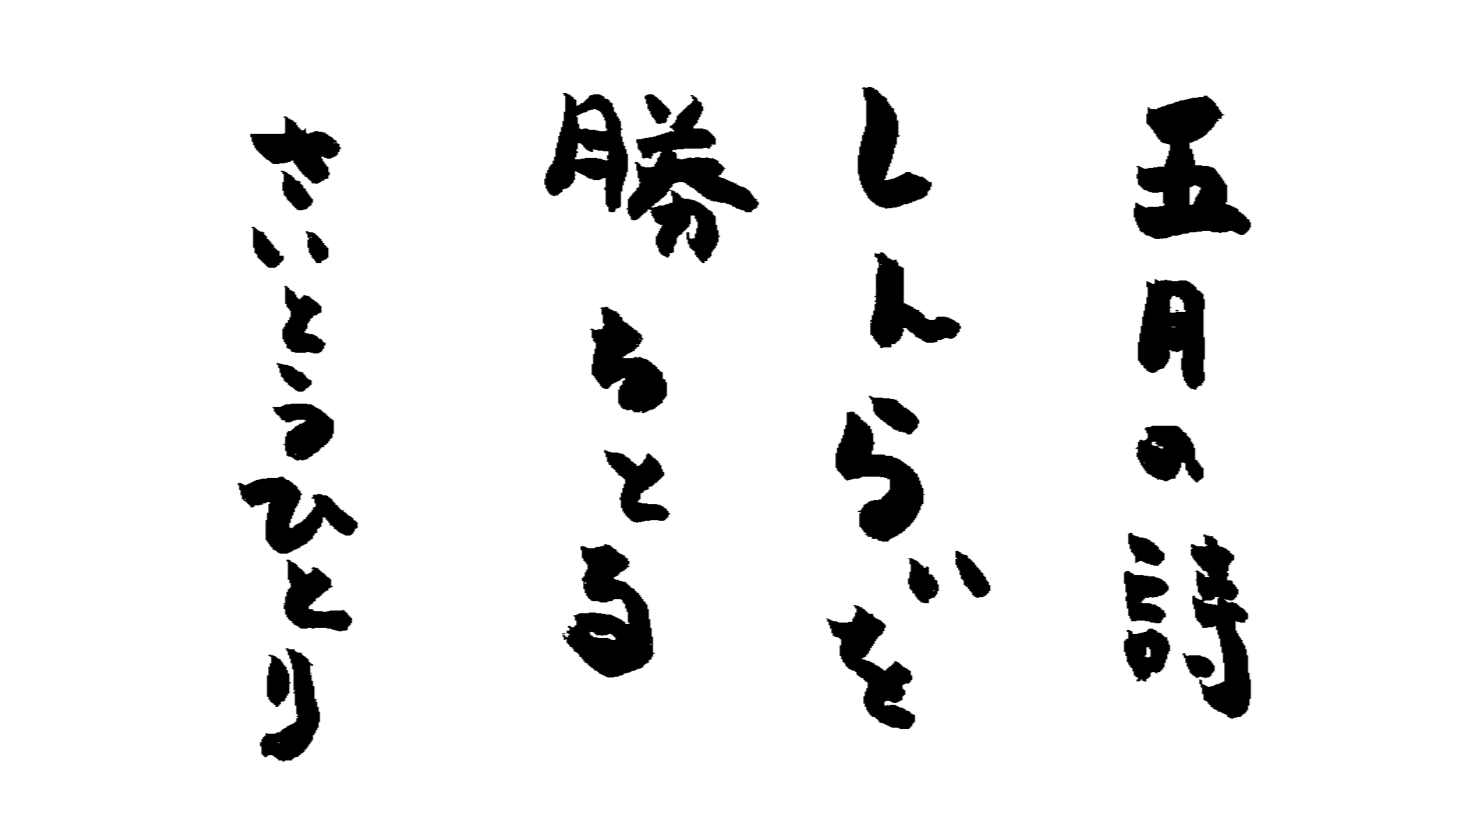 五月の詩
しんらいを
勝ちとる
さいとうひとり